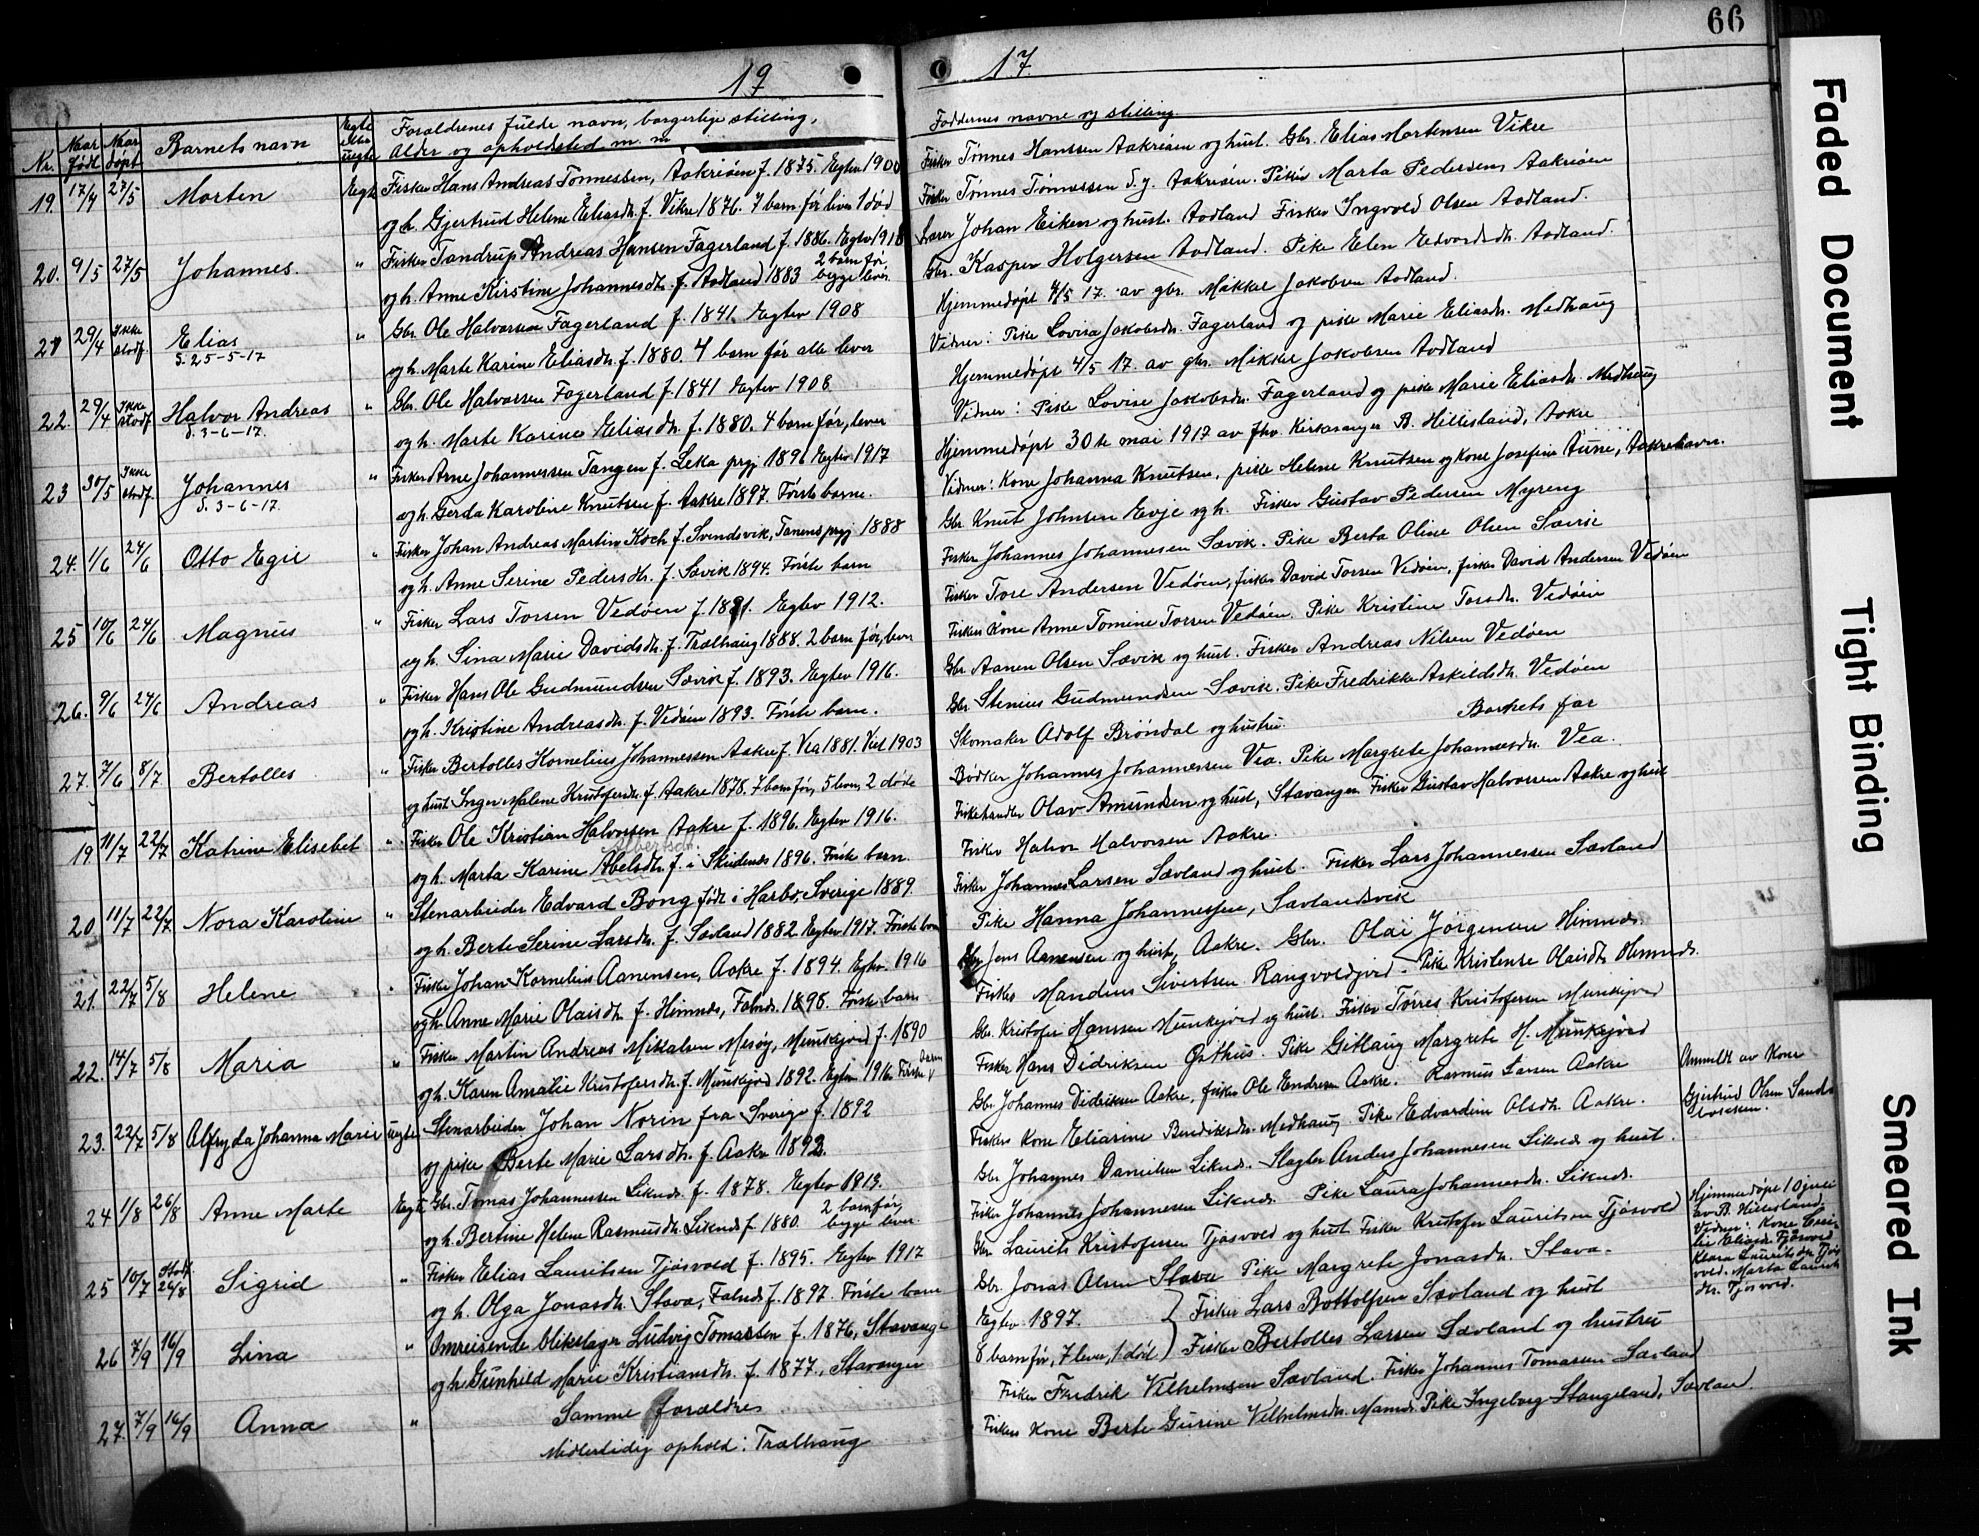 66
19
17.
Nr.
Naar født
Naar døpt
Barnets navn
Ægte eller uægte
Forældrenes fulde navn, borgerlige stilling,
alder og opholdsted m. m.
Faddernes navne og stilling.
19. 17/4 27/5 Morten Ægte Fisker Hans Andreas Tønnessen, Aakreøen f. 1875. Egtev 1900
og h. Gjertrud Helene Eliasdtr. f. Vikre 1876. 7 barn før, lever 1 død
20. 9/5 27/5 Johannes. " Fisker Tandrup Andreas Hansen Fagerland f. 1886. Egtev 1918
og h. Anne Kirstine Johannesdtr. f. Aadland 1883 2 barn før, begge lever.
21 29/4 Ikke stadf. Elias " Gbr. Ole Halvorsen Fagerland f. 1841. Egtev 1908
d. 25-5-17 og h. Marte Karine Eliasdtr. f. 1880. 4 barn før alle lever
22. 29/4 Ikke stadf. Halvor Andreas " Gbr. Ole Halvorsen Fagerland f. 1841 Egtev 1908
d. 3-6-17. og h. Marte Karine Eliasdtr. f. 1880. 4 barn før, lever
23 30/5 Ikke stadf. Johannes " Fisker Arne Johannessen Tangen f. Leka prgj 1896 Egtev 1917
d. 3-6-17. og h. Gerda Karoline Knutsen f. Aakre 1897. Første barn.
24. 1/6 24/6 Otto Egil " Fisker Johan Andreas Martin Koch f. Svendsvik, Tanens prgj 1888
og h. Anne Serine Pedersdtr. f. Sævik 1894. Første barn
25 10/6 24/6 Magnus " Fisker Lars Torsen Vedøen f. 1881. Egtev 1912.
og h. Sina Marie Davidsdtr. f. Trælhaug 1888. 2 barn før, lever
26. 9/6 24/6 Andreas " Fisker Hans Ole Gudmundsen Sævik f. 1893. Egtev 1916.
og h. Kristine Andreasdtr. f. Vedøen 1893. Første barn.
27. 7/6 8/7 Bertolles " Fisker Bertolles Kornelius Johannessen Aakre f. Vea 1881. Viet 1903
og hust Inger Malene Kristofersdtr. f. Aakre 1878. 7 barn før, 5 lever, 2 døde
19 11/7 22/7 Katrine Elisebet " Fisker Ole Kristian Halvorsen Aakre f. 1896. Egtev 1916.
Albertsdtr.
og h. Marta Karine Abelsdtr. f. i Skudenes 1896. Første barn.
20 11/7 22/7 Nora Karoline " Stenarbeider Edvard Bong født i Harbo, Sverige 1889.
og h. Berte Serine Larsdtr. f. Sævland 1882 Egtev 1917. Første barn
21. 22/7 5/8 Helene " Fisker Johan Kornelius Aanensen, Aakre f. 1894. Egtev. 1916
og h. Anne Marie Olaisdtr. f. Hemnes, Falnes 1896. Første barn
22. 14/7 5/8 Maria " Fisker Martin Andreas Mikalsen Mesøy, Munkejord f. 1890
og h. Karen Amalie Kristofersdtr. f. Munkejord 1892. Egtev 1916. Første barn
23. 22/7 5/8 Alfryda Johanna Marie uegte Stenarbeider Johan Norin fra Sverige f. 1892
og pike Berte Marie Larsdtr. f. Aakre 1892.
24 1/8 26/8 Anne Marte Ægte Gbr. Tomas Johannessen Liknes f. 1878. Egtev 1913.
og h. Bertine Helene Rasmusdtr. Liknes f 1880 2 barn før, begge lever.
25 10/7 Stadf. 26/8 Sigrid " Fisker Elias Lauritsen Tjøsvold f. 1895. Egtev 1917
og h. Olga Jonasdtr. Stava, Falnes f. 1897. Første barn
26 7/9 16/9 Lina " Omreisende blikslager Ludvig Tomassen f. 1876, Stavanger
og h. Gunhild Marie Kristiansdtr. f. 1877., Stavanger
27. 7/9 16/9 Anna " Samme forældre
Midlertidig ophold: Trælhaug
Fisker Tønnes Hanssen Aakreøen og hust. Gbr. Elias Mortensen Vikre
Fisker Tønnes Tønnessen d. y. Aakreøen. Piker Marta Pedersen, Aakreøen
Lærer Johan Eiken og hust. Aadland Fisker Ingvold Olsen Aadland.
Gbr. Kasper Holgersen Aadland. Pike Elen Edvardsdtr. Aadland.
Hjemmedøpt 4/5 17. av gbr. Mikkel Jakobsen Aadland.
Vidner: Pike Lovise Jakobsdtr. Fagerland og pike Marie Eliasdtr. Medhaug
Hjemmedøpt 4/5 17. av gbr. Mikkel Jakobsen Aadland
Vidner: Pike Lovise Jakobsdtr. Fagerland og pike Marie Eliasdtr. Medhaug
Hjemmedøpt 30te mai 1917 av fhv. Kirkesanger B. Hillesland, Aakre
Vidner: Kone Johanna Knutsen, pike Helene Knutsen og kone Josefine Aune, Aakrehavn.
Gbr Knut Johnsen Evje og h. Fisker Gustav Pedersen Myreng
Fisker Johannes Johannesen Sævik. Pike Berta Oline Olsen Sævik
Fisker Tore Andersen Vedøen, fisker David Torsen Vedøen, fisker David Andersen Vedøen
Fiskers kone Anne Tomine Torsen Vedøen. Pike Kristine Torsdtr. Vedøen
Gbr Aanen Olsen Sævik og hust. Fisker Andreas Nilsen Vedøen
Gbr Stenius Gudmundsen Sævik. Pike Fredrikke Askildsdtr. Vedøen
Skomaker Adolf Brøndal og hustru. Barnets far
Bødker Johannes Johannessen Vea. Pike Margrete Johannesdtr. Vea.
Fiskehandler Olav Amundsen og hust, Stavanger. Fisker Gustav Halvorsen Aakre og hust
Fisker Halvor Halvorsen Aakre.
Fisker Johannes Larsen Sævland og hust. Fisker Lars Johannessen Sævland
Pike Hanna Johannessen, Sævlandsvik
Gbr Jens Aanensen og hust, Aakre. Gbr. Olai Jørgensen Hemnes.
Fisker Mandius Sivertsen Rangvoldjord. Pike Kristense Olaisdtr. Hemnes.
Gbr. Kristofer Hanssen Munkejord og hust. Fisker Tørres Kristofersen Munkejord
Fisker Hans Didriksen Østhus. Pike Gitlaug Margrete H. Munkejord
Gbr. Johannes Didriksen Aakre, fisker Ole Endresen Aakre. Rasmus Larsen Aakre
Fiskers Kone Eliarine Bendiksdtr. Medhaug. Pike Edvardine Olsdtr. Aakre.
Anmeldt av Kone Gjertrud Olsen
Gbr Johannes Danielsen Liknes. Slagter Anders Johannesen Liknes og hust.
Fisker Johannes Johannesen Liknes. Pike Laura Johannesdtr. Liknes.
Gbr Laurits Kristofersen Tjøsvold og hust Fisker Kristofer Lauritsen Tjøsvold
Gbr Jonas Olsen Stava Pike Margrete Jonasdtr. Stava.
Hjemmedøpt 10 juli
av B. Hillesland,
Vidner: Kone
Eliasdtr Tjøsvold
Klara Lauritsdtr. Tjøs-
vold. Marta Laurits-
dtr. Tjøsvold.
Egtev 1897. } Fisker Lars Bottolfsen Sævland og hust
8 barn før, 7 lever, 1 død } Fisker Bertolles Larsen Sævland og hustru
Fisker Fredrik Vilhelmsen Sævland. Fisker Johannes Tomassen Sævland
Fiskers kone Berte Gurine Vilhelmsdtr. Pike Ingeborg Stangeland, Sævland.
Faded Document
Tight Binding
Smeared Ink